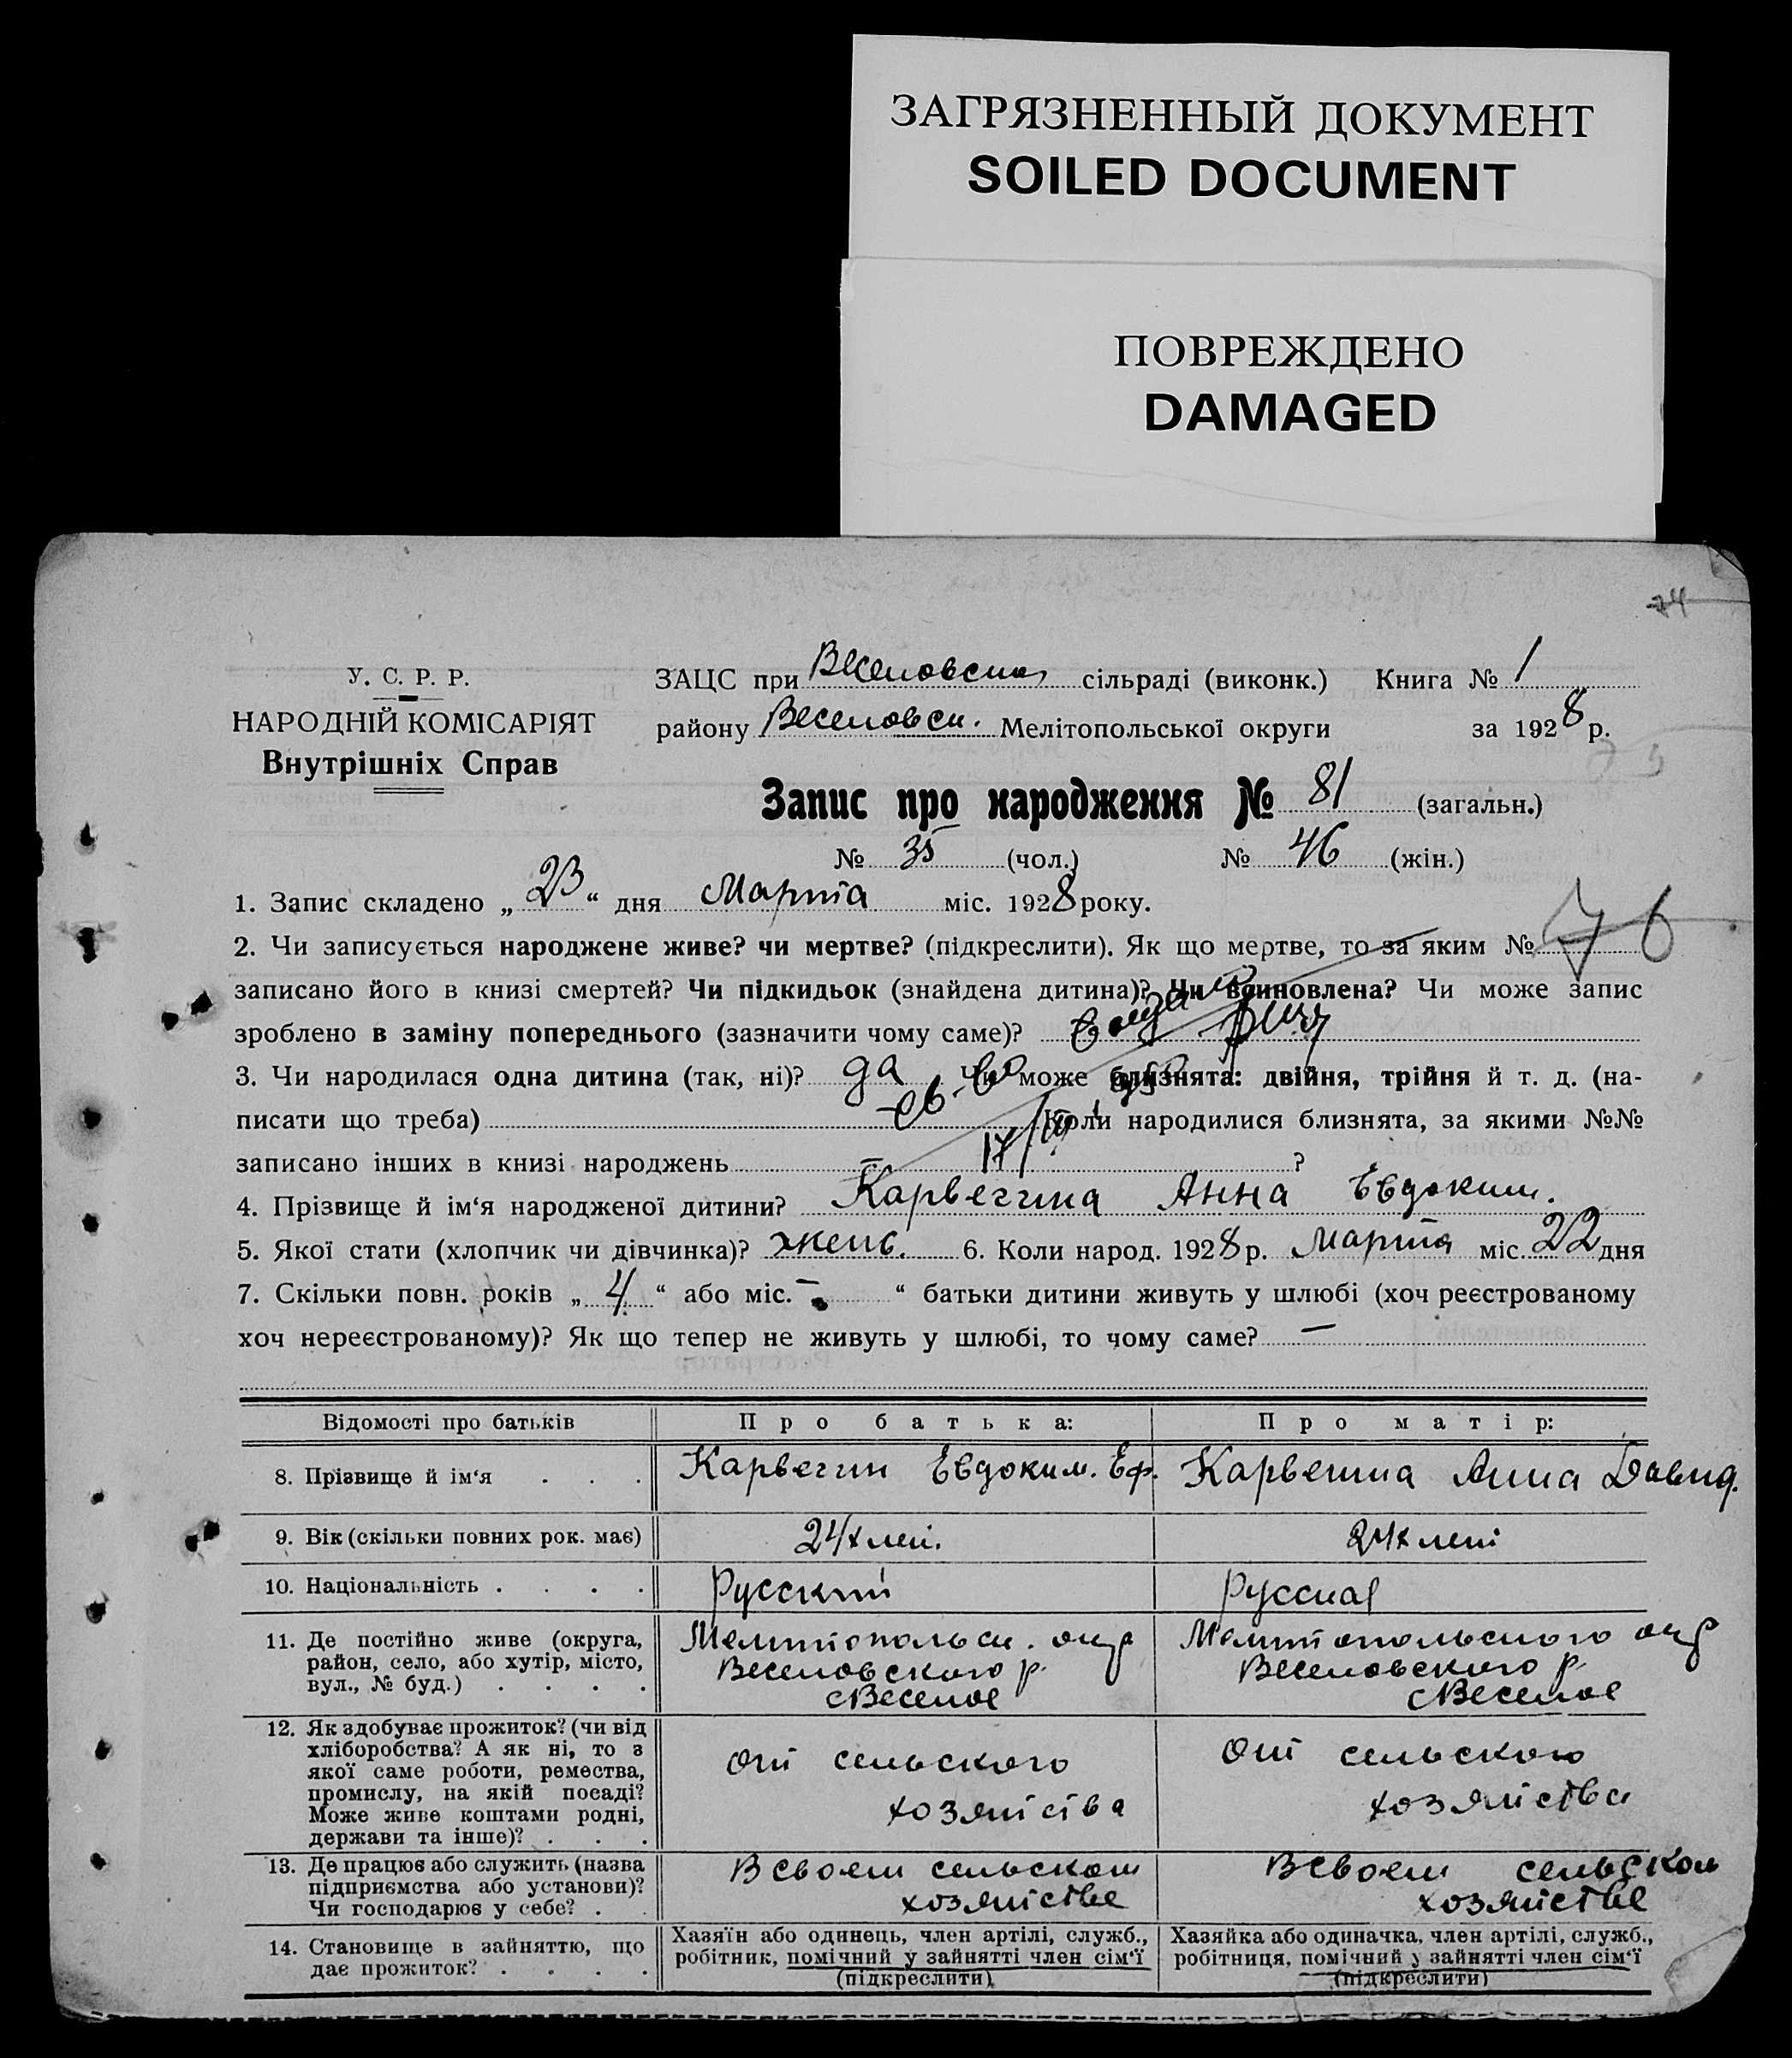 ЗАГРЯЗНЕННЫЙ ДОКУМЕНТ
SOILED DOCUMENT
ПОВРЕЖДЕНО
DAMAGED
У. С. Р. Р.
НАРОДНІЙ КОМІСАРІЯТ
Внутрішніх Справ
ЗАЦС при Веселовском сільраді (виконк.) Книга № 1
району Веселовск. Мелітопольської округи за 1928 р.
Запис про народження № 81 (загальн.)
№ 35 (чол.) № 46 (жін.)
1. Запис складено „ 23 “ дня Марта міс. 1928 року.
2. Чи записується народжене живе? чи мертве? (підкреслити). Як що мертве, то за яким № 76
записано його в книзі смертей? Чи підкидьок (знайдена дитина)? Чи всиновлена? Чи може запис
зроблено в заміну попереднього (зазначити чому саме)?
3. Чи народилася одна дитина (так, ні)? да Чи може близнята: двійня, трійня й т. д. (на-
писати що треба) Коли народилися близнята, за якими №№
записано інших в книзі народжень — ?
4. Прізвище й ім‘я народженої дитини? Карвегина Анна Евдоким.
5. Якої стати (хлопчик чи дівчинка)? женс. 6. Коли народ. 1928 р. Марта міс. 22 дня
7. Скільки повн. років „ 4 “ або міс. — “ батьки дитини живуть у шлюбі (хоч реєстрованому
хоч нереєстрованому)? Як що тепер не живуть у шлюбі, то чому саме? —
Відомості про батьків Про батька: Про матір:
8. Прізвище й ім‘я . . . Карвегин Евдоким. Еф. Карвегина Анна Давид.
9. Вік (скільки повних рок. має) 24х лет. 24х лет
10. Національність . . . . Русский Русская
11. Де постійно живе (округа,
район, село, або хутір, місто,
вул., № буд.) . . . .
Мелитопольск. окр
Веселовского р.
с Веселое
Мелитопольского окр
Веселовского р.
с Веселое
12. Як здобуває прожиток? (чи від
хліборобства? А як ні, то з
якої саме роботи, ремества,
промислу, на якій посаді?
Може живе коштами родні,
держави та інше)? . . .
От сельского
хозяйства
От сельского
хозяйства
13. Де працює або служить (назва
підприємства або установи)?
Чи господарює у себе? .
В своем сельском
хозяйстве
В своем сельском
хозяйстве
14. Становище в зайняттю, що
дає прожиток? . . . .
Хазяїн або одинець, член артілі, служб.,
робітник, помічний у зайнятті член сім‘ї
(підкреслити)
Хазяйка або одиначка, член артілі, служб.,
робітниця, помічний у зайнятті член сім‘ї
(підкреслити)